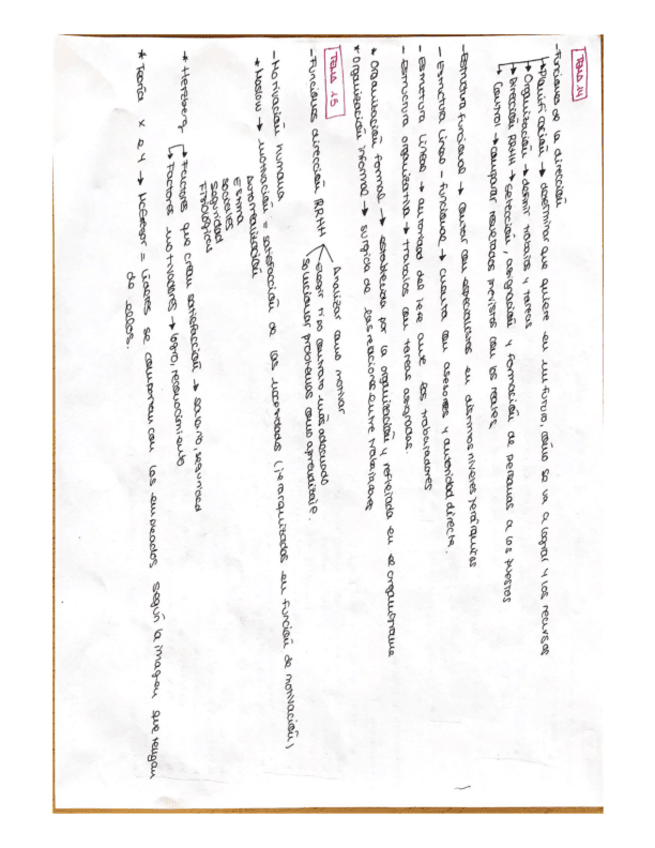 TEMA 14
- Funciones de la dirección
↳ Planificación → determinar que quiere en un futuro, cómo se va a lograr y los recursos
↳ Organización → definir trabajos y tareas
↳ Dirección RRHH → selección, asignación y formación de personas a los puestos
↳ Control → comparar resultados previstos con los reales.
- Estructura funcional → contar con especialistas en distintos niveles jerárquicos
- Estructura lineo-funcional → cuenta con asesores y autoridad directa.
- Estructura lineal → autoridad del jefe ante los trabajadores
- Estructura organizativa → trabajos con tareas asignadas.
* Organización formal → establecida por la organización y reflejada en el organigrama
* Organización informal → surgida de las relaciones entre trabajadores
TEMA 15
Analizar como motivar
- Funciones dirección RRHH elegir tipo contrato más adecuado
solucionar problemas como aprendizaje.
- Motivación humana
* Maslow → motivación = satisfacción de las necesidades (jerarquizadas en función de motivación)
Autorrealización
Estima
Sociales
Seguridad
Fisiológicas
* Herzberg ↳ Factores que crean satisfacción → salario, seguridad
↳ Factores motivadores → logro, reconocimiento
* Teoría X e Y → McGregor = líderes se comportan con los empleados según la imagen que tengan
de ellos.